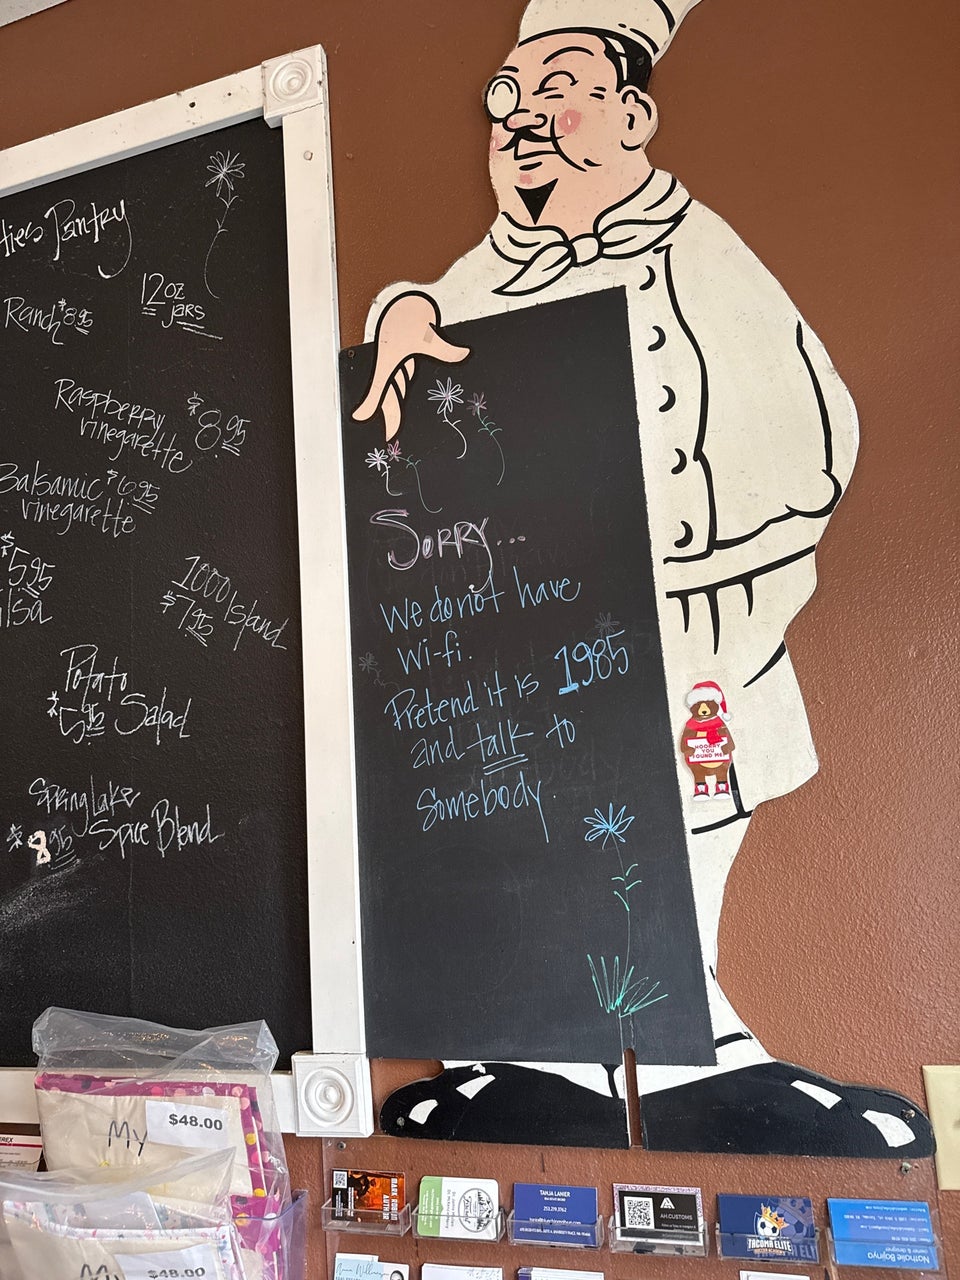 Pantry
12oz
jars
Ranch $8.95
Raspberry
vinegarette
$8.95
Balsamic $6.95
vinegarette
$5.95
1000 Island
$7.95
Potato
$5.95 Salad
Spring Lake
$8.95 Spice Blend
Sorry...
We do not have
Wi-fi.
Pretend it is 1985
and talk to
somebody.
HOORAY
YOU
FOUND ME!
My
$48.00
My
$48.00
DARK ROMANCE
AUTHOR
TANJA LANIER
253.279.3762
AH.CUSTOMS
TACOMA ELITE
Nathalie Bajinya